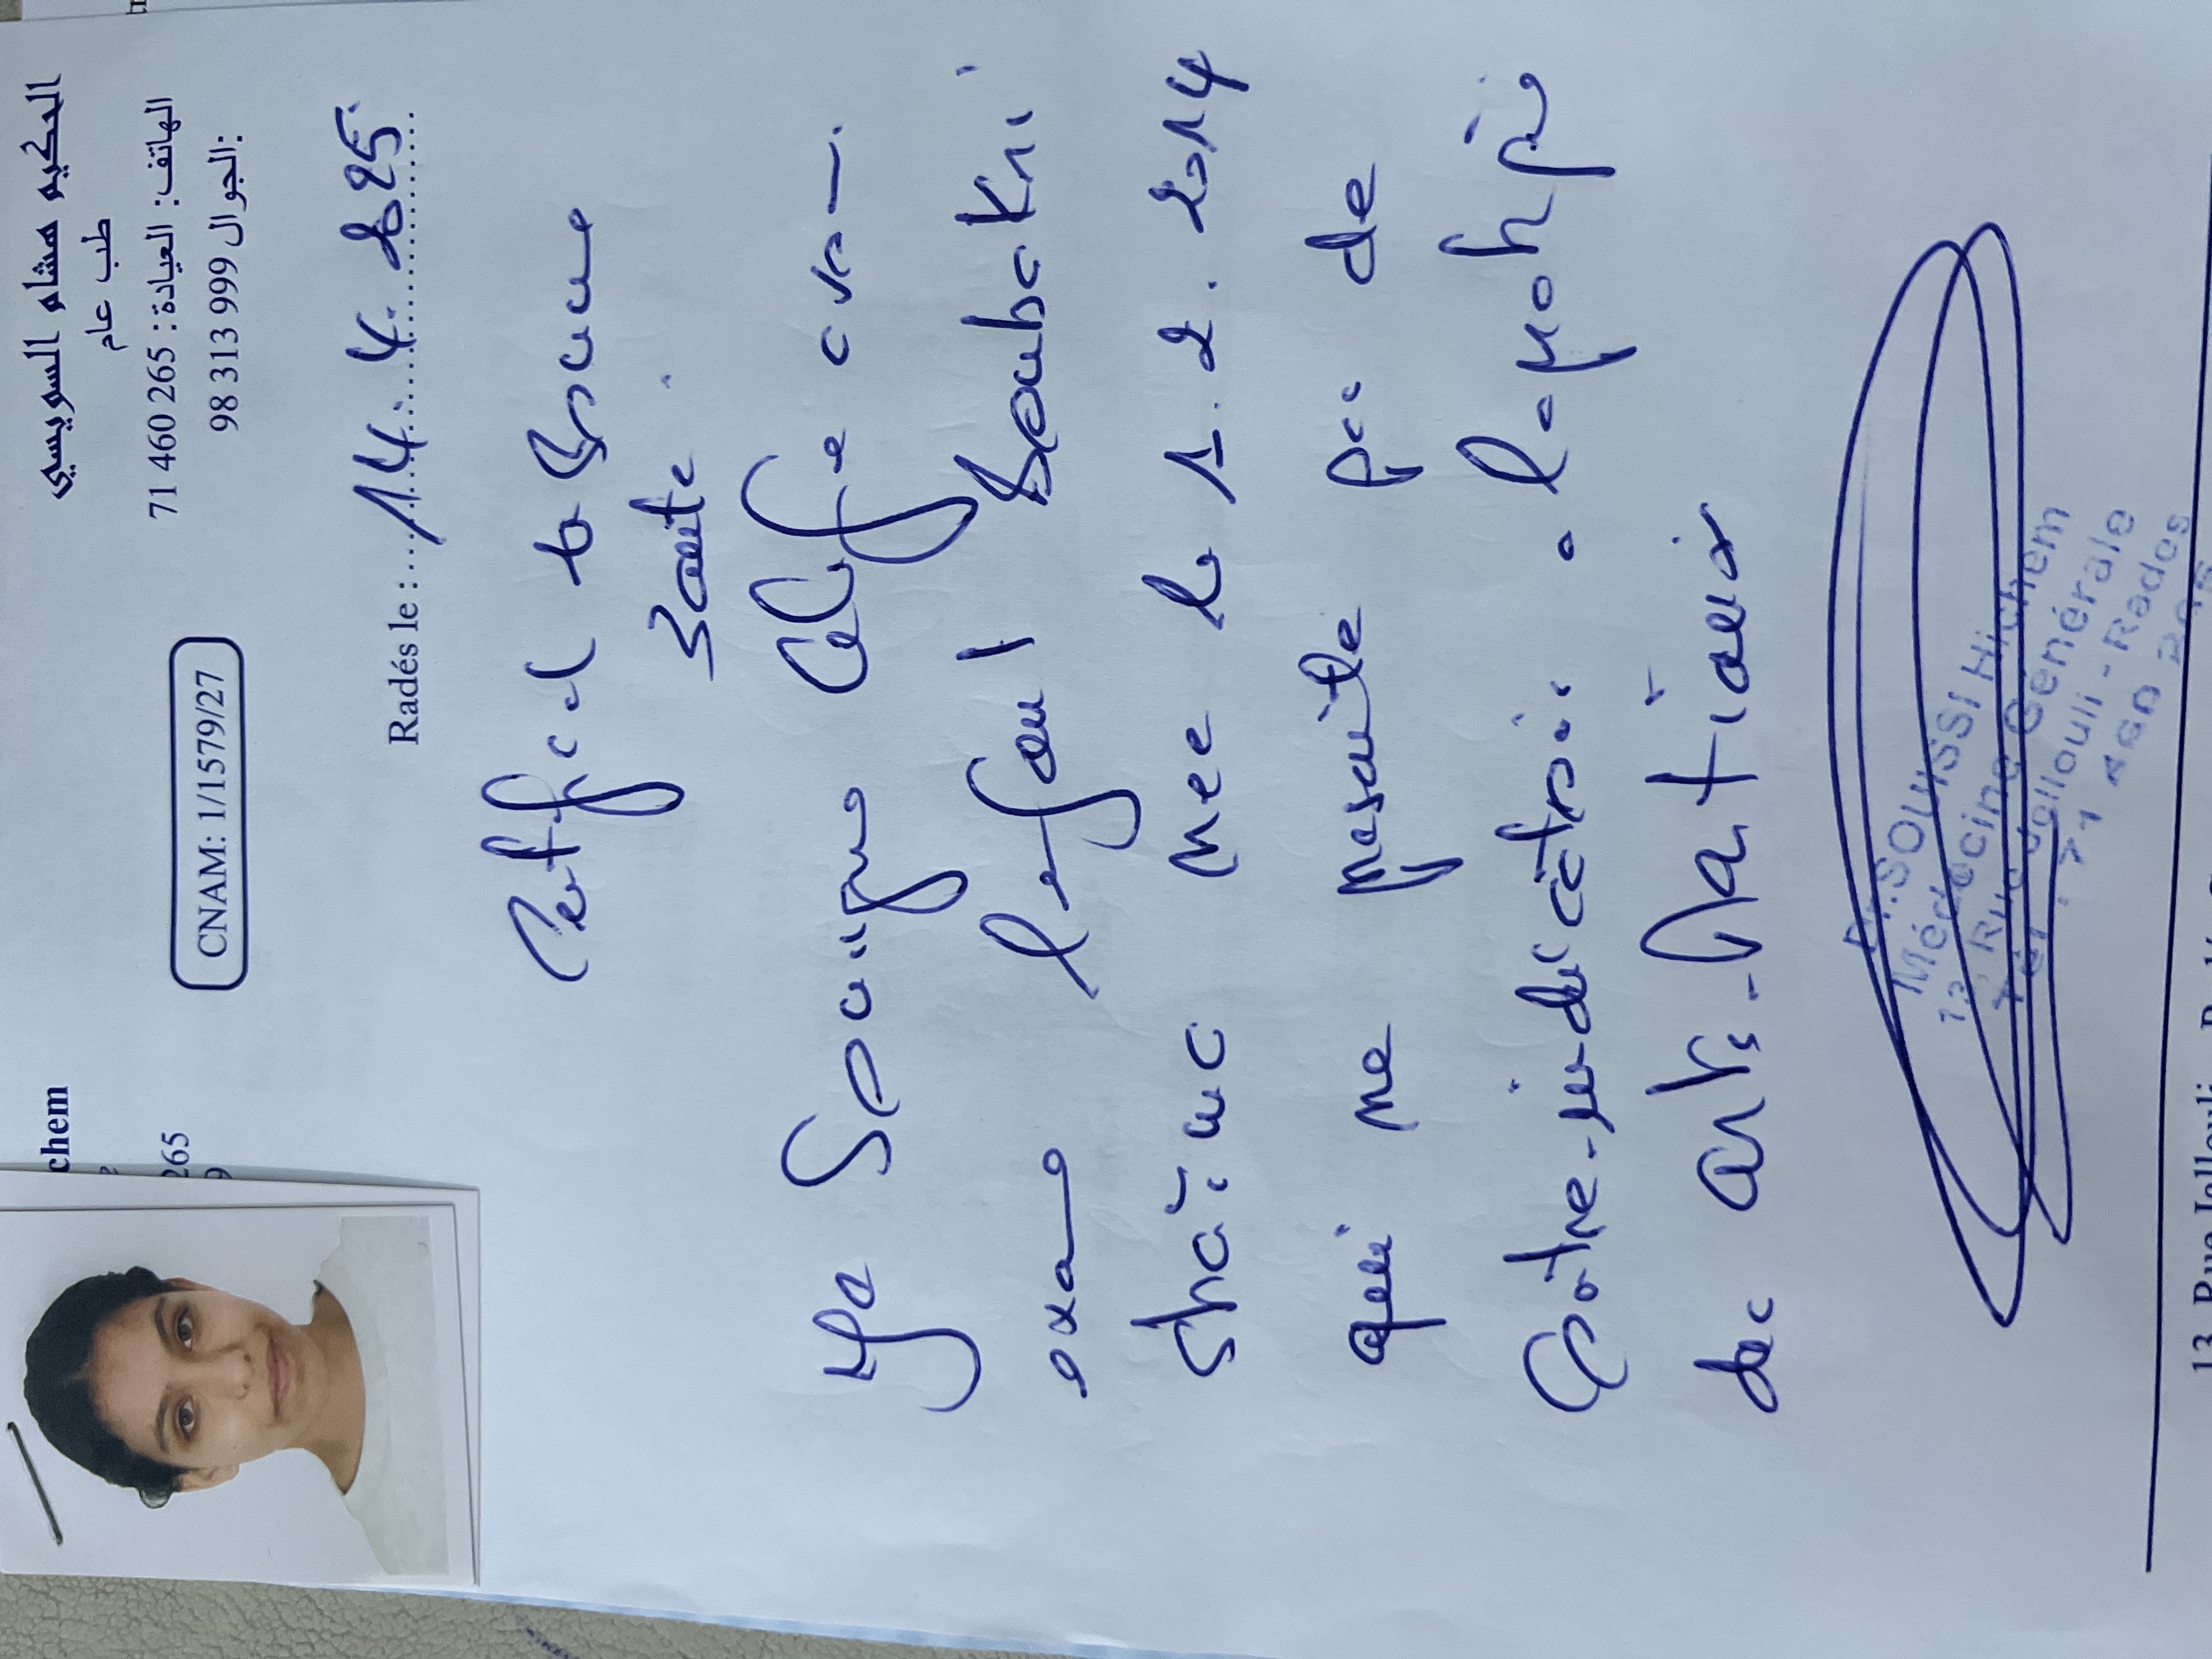 chem
265
9
الحكيم هشام السويسي
طب عام
الهاتف: العيادة: 265 460 71
الجوال: 999 313 98
CNAM: 1/1579/27
Radés le : 14. 4. 2025.
Certificat de bonne
santé.
Je soussigné certifie avoir
examiné l'enfant Boubakri
née le 1. 2. 2014
qui ne présente pas de
contre-indications à la pratique
des arts-martiaux
Dr. SOUISSI Hichem
Médecine Générale
13 Rue Jallouli - Rades
71 460 265
13 Rue Jallouli